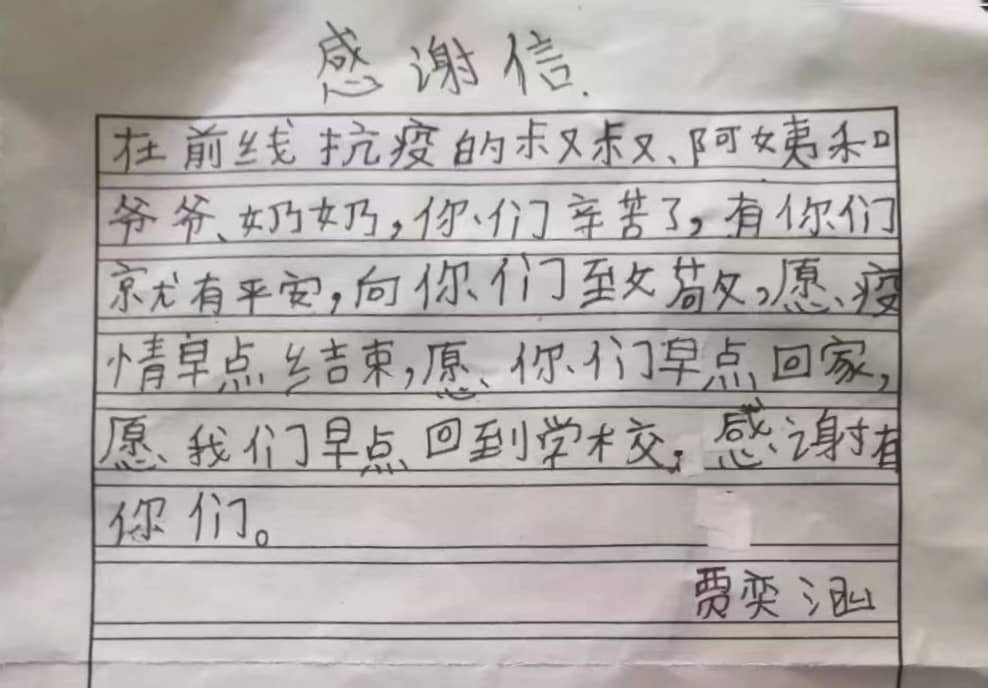 感谢信.
在前线抗疫的叔叔、阿姨和
爷爷、奶奶,你们辛苦了,有你们
就有平安,向你们致敬,愿疫
情早点结束,愿你们早点回家,
愿我们早点回到学校,感谢有
你们。
贾奕涵